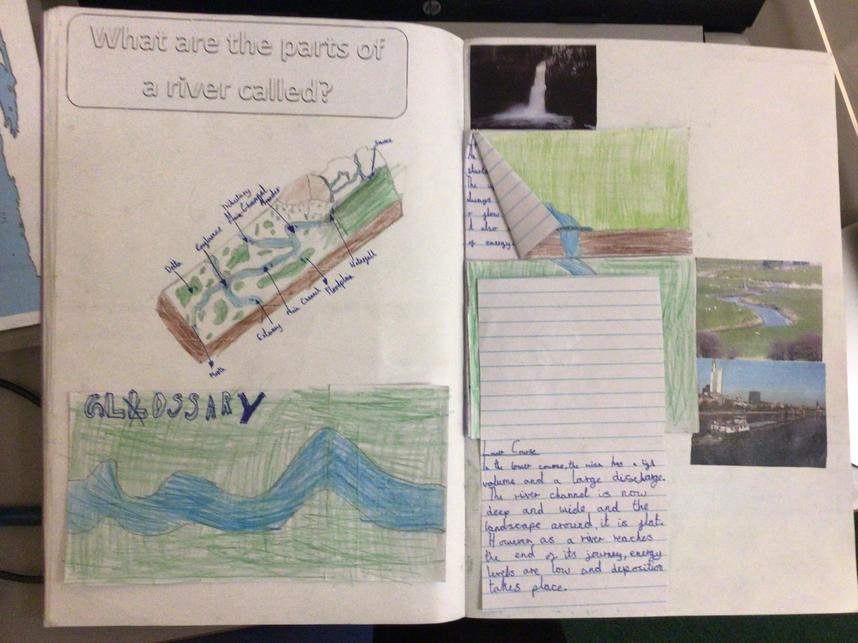 What are the parts of
a river called?
Source
Tributary
Main Channel
Meander
Confluence
Delta
Waterfall
Floodplain
Main Channel
Estuary
Moth
GLOSSARY
The
always
flow
also
of energy.
Lower Course
In the lower course, the river has a high
volume and a large discharge.
The river channel is now
deep and wide and the
landscape around it is flat.
However as a river reaches
the end of its journey, energy
levels are low and deposition
takes place.